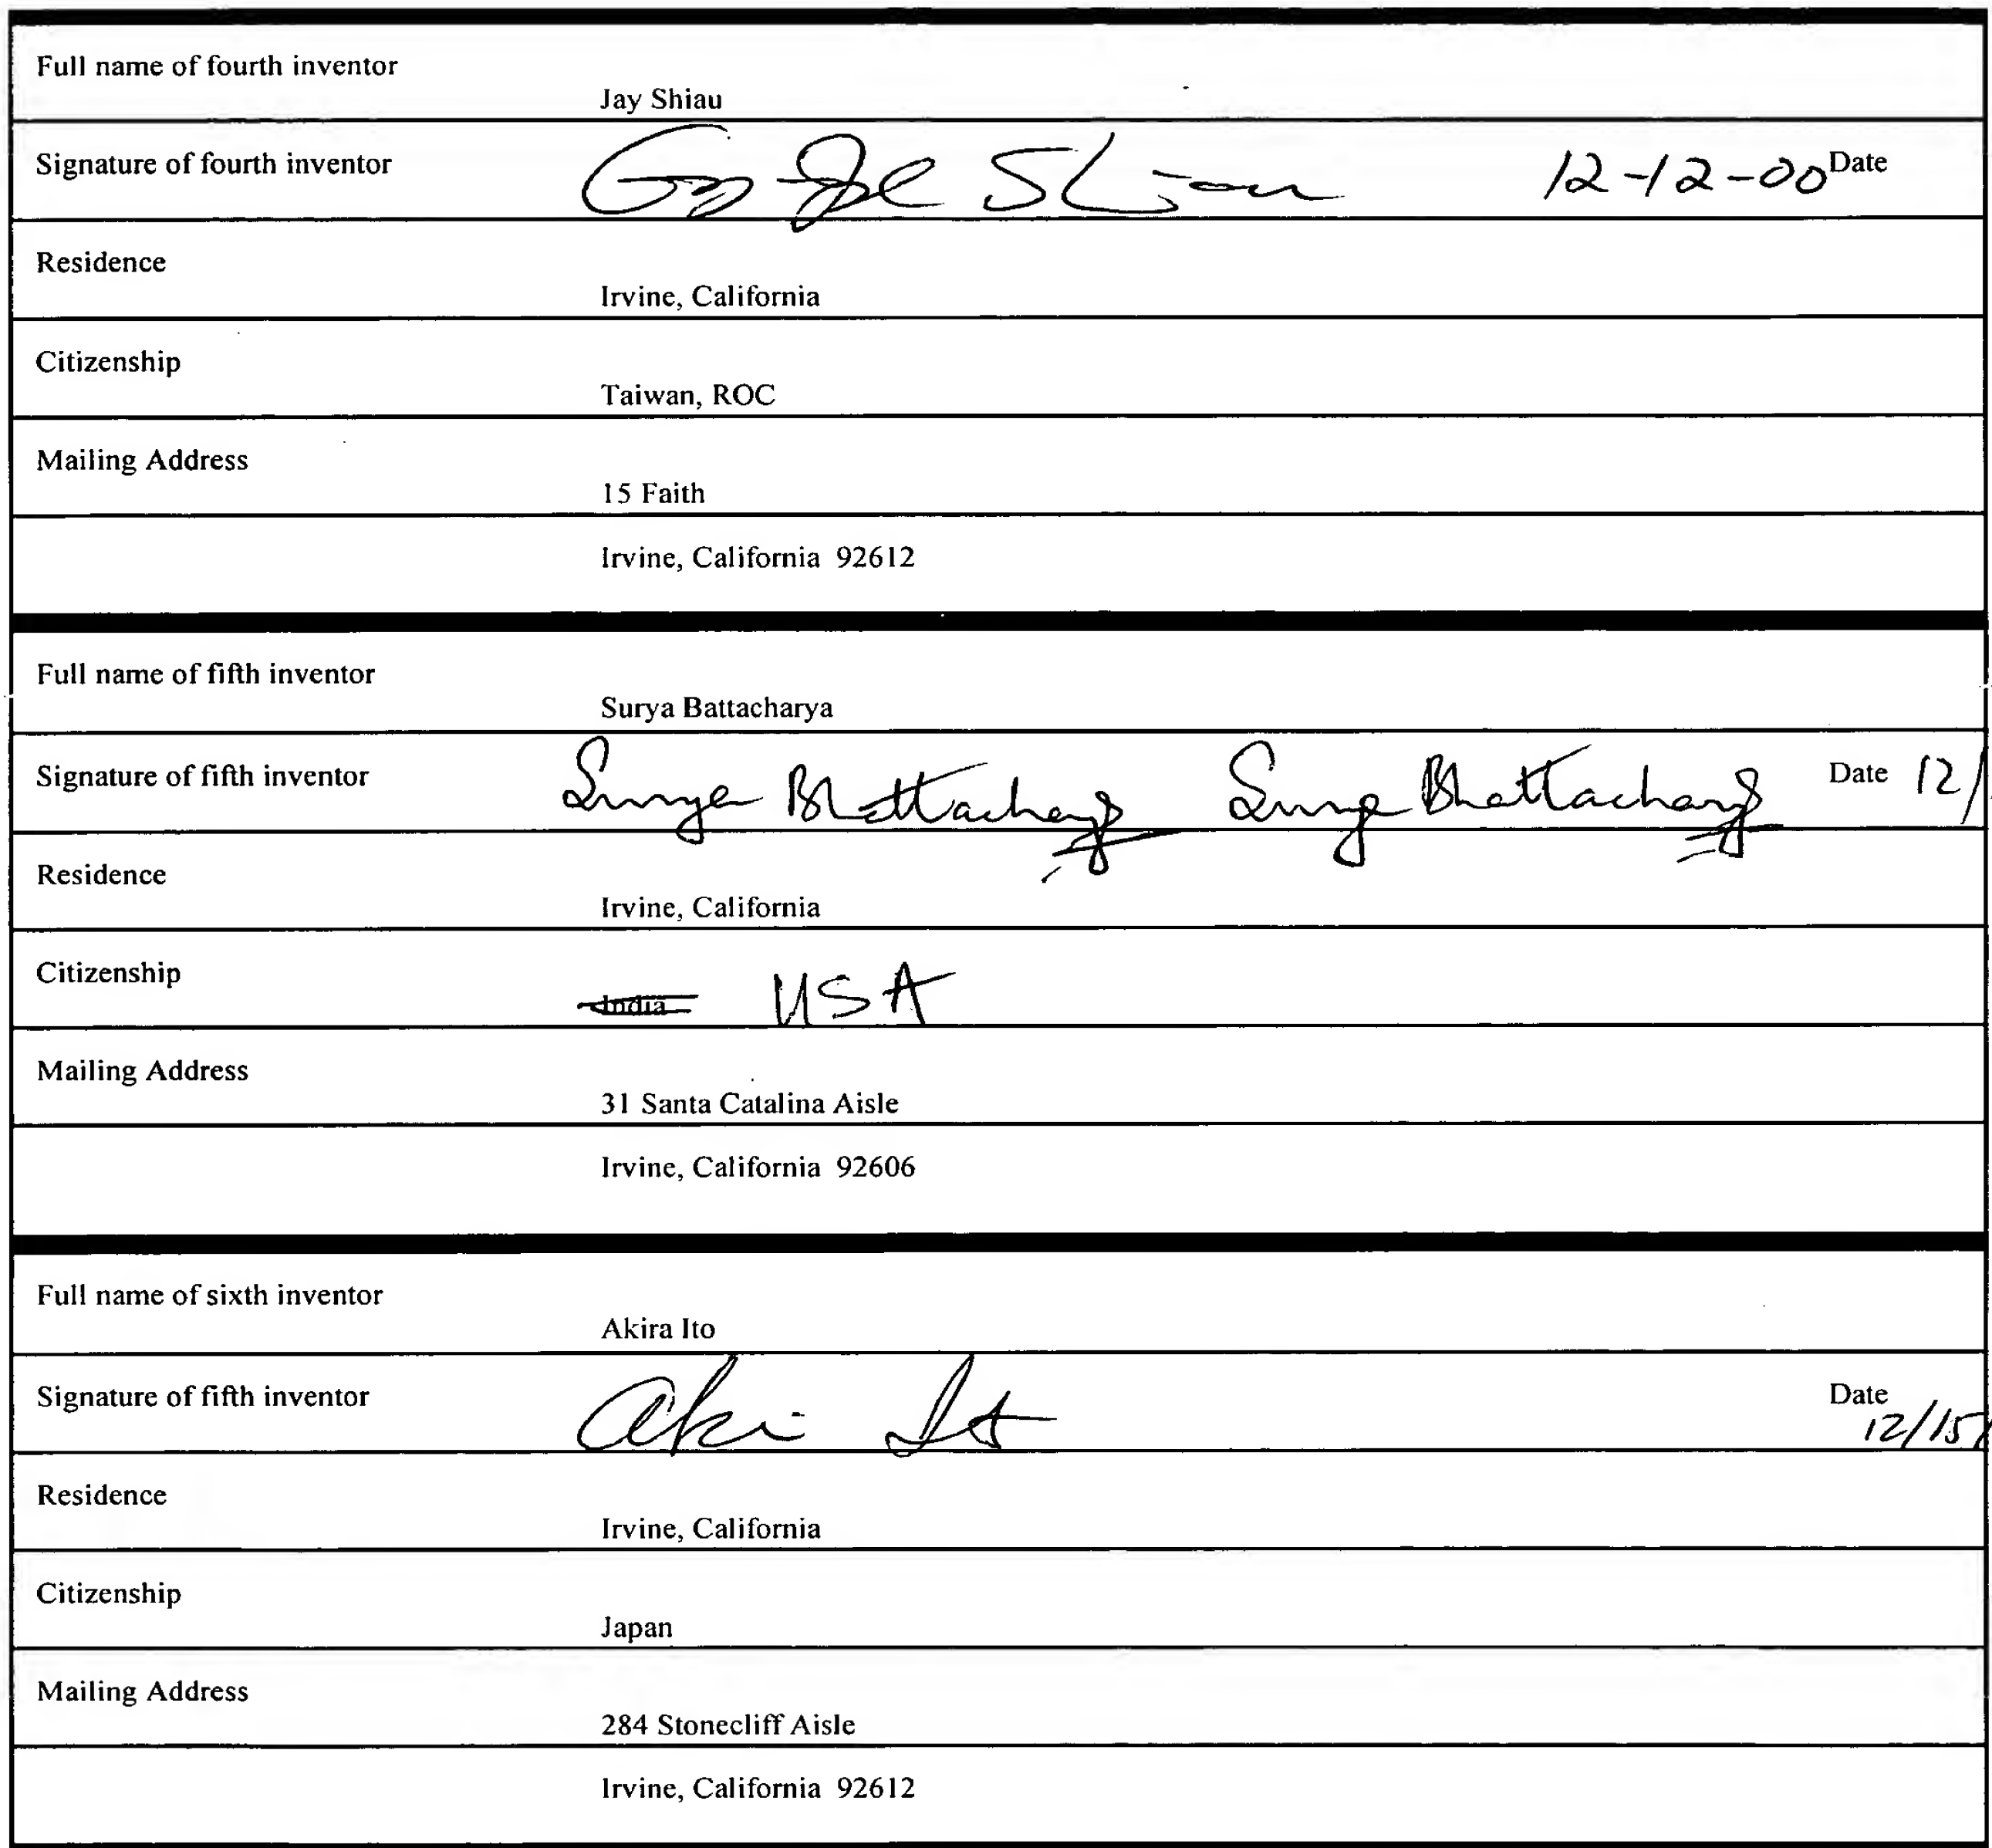 Full name of fourth inventor
Jay Shiau
Signature of fourth inventor Shiau 12-12-00 Date
Residence
Irvine, California
Citizenship
Taiwan, ROC
Mailing Address
15 Faith
Irvine, California 92612
Full name of fifth inventor
Surya Battacharya
Signature of fifth inventor Surya Bhattacharya Surya Bhattacharya Date 12/
Residence
Irvine, California
Citizenship
India USA
Mailing Address
31 Santa Catalina Aisle
Irvine, California 92606
Full name of sixth inventor
Akira Ito
Signature of fifth inventor Aki Ito Date
12/15/
Residence
Irvine, California
Citizenship
Japan
Mailing Address
284 Stonecliff Aisle
Irvine, California 92612